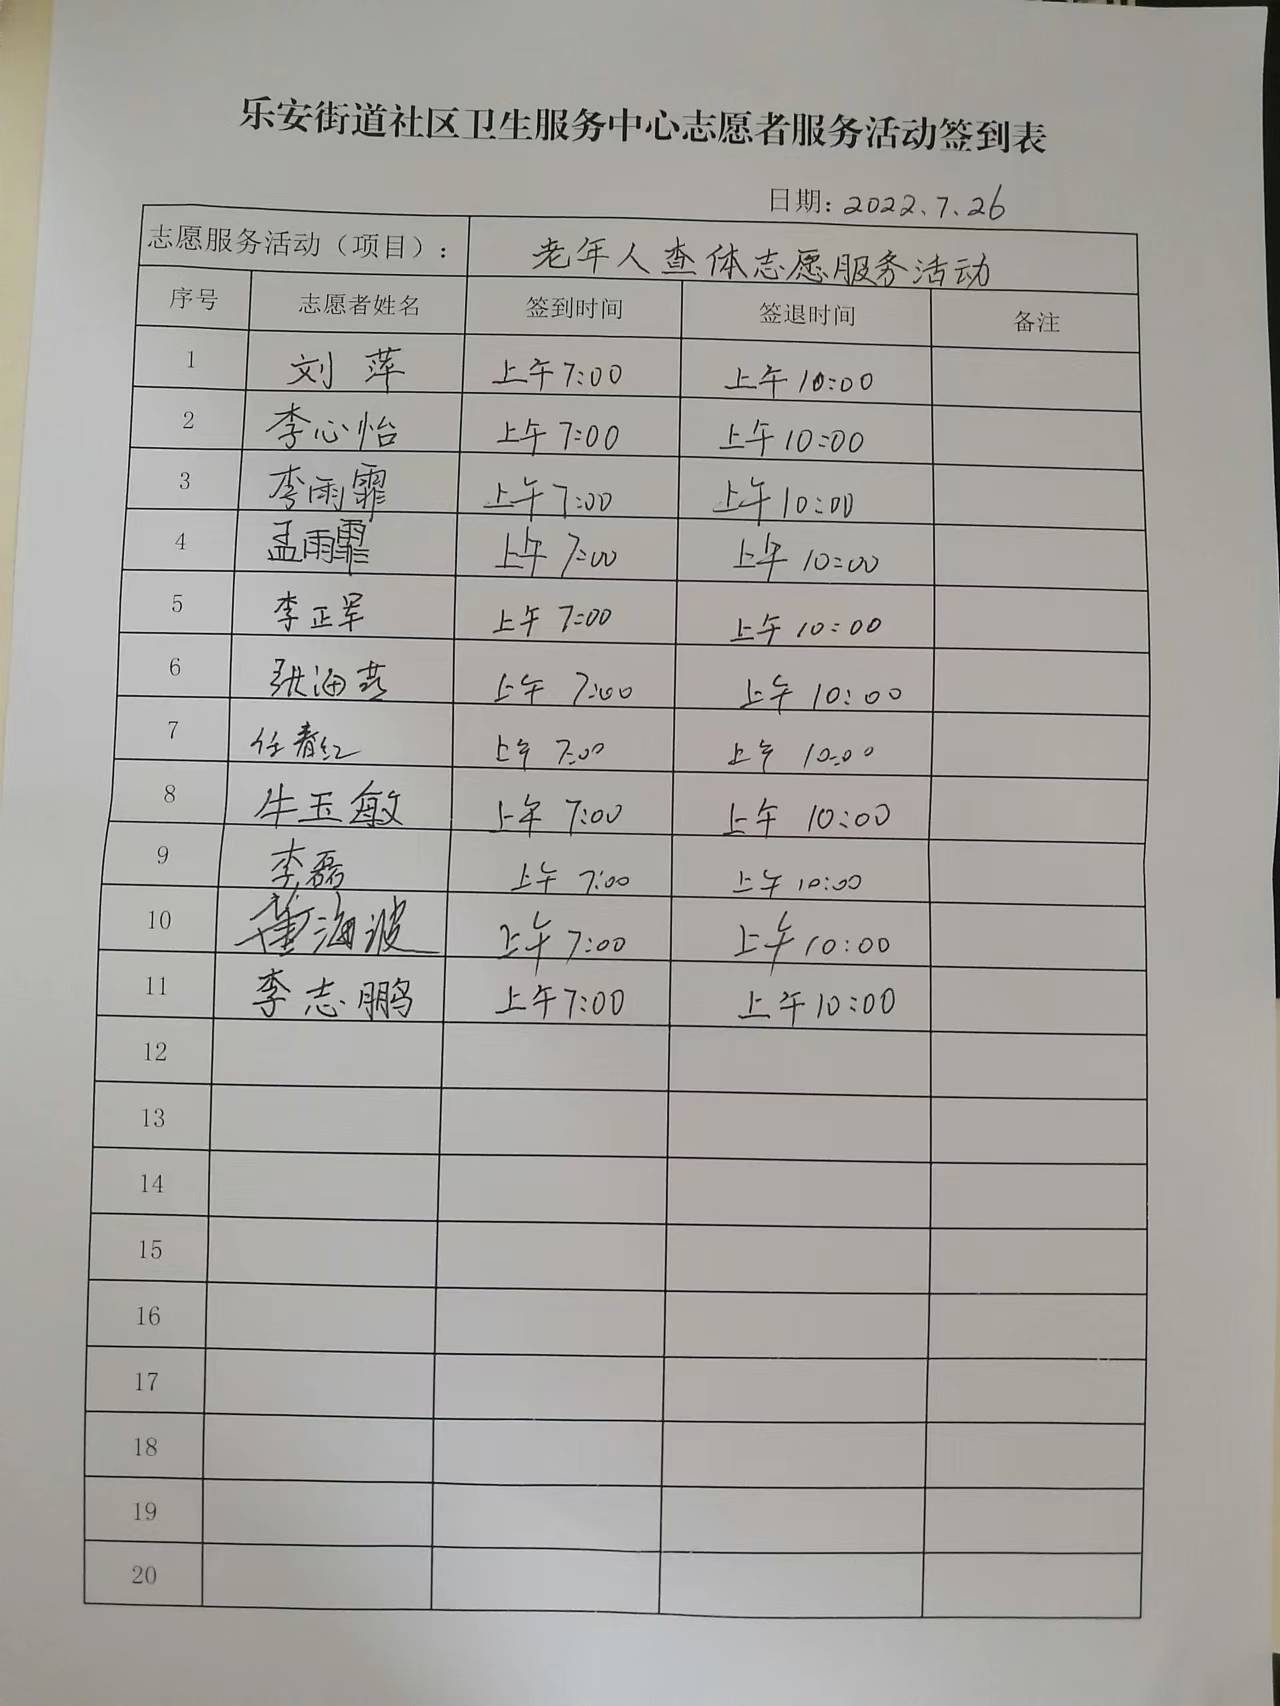 乐安街道社区卫生服务中心志愿者服务活动签到表
日期: 2022.7.26
志愿服务活动（项目）： 老年人查体志愿服务活动
序号 志愿者姓名 签到时间 签退时间 备注
1 刘萍 上午7:00 上午10:00
2 李心怡 上午7:00 上午10:00
3 李雨霏 上午7:00 上午10:00
4 孟雨霏 上午7:00 上午10:00
5 李正军 上午7:00 上午10:00
6 张海燕 上午7:00 上午10:00
7 任春红 上午7:00 上午10:00
8 牛玉敏 上午7:00 上午10:00
9 李磊 上午7:00 上午10:00
10 董海波 上午7:00 上午10:00
11 李志鹏 上午7:00 上午10:00
12
13
14
15
16
17
18
19
20